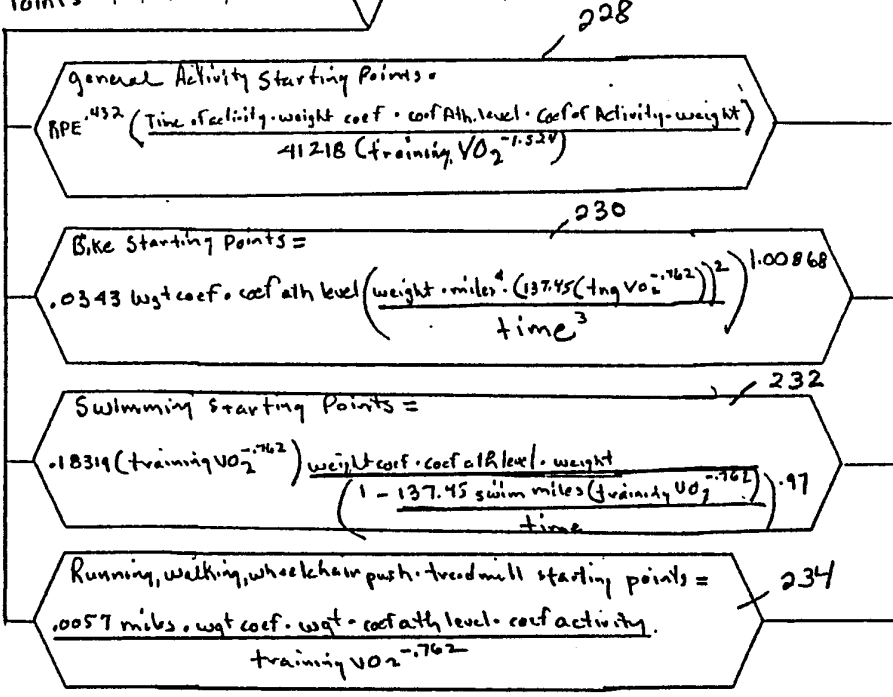 Points
228
General Activity Starting Points =
RPE^.432 (Time of activity · weight coef · coef Ath. level · Coef of Activity · weight)
41218 (training VO2^-1.524)
230
Bike Starting Points =
.0343 wgt coef · coef ath level (weight · miles^4 · (137.45 (tng VO2^-.762))^2)^1.00868
time^3
232
Swimming Starting Points =
.18319 (training VO2^-.762) weight coef · coef ath level · weight
(1 - 137.45 swim miles (training VO2^-.762)) .97
time
Running, walking, wheelchair push · treadmill starting points =
234
.0057 miles · wgt coef · wgt · coef ath level · coef activity
training VO2^-.762